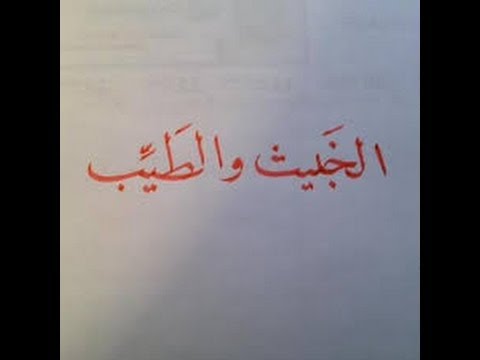 الخَبيث والطَيِّب